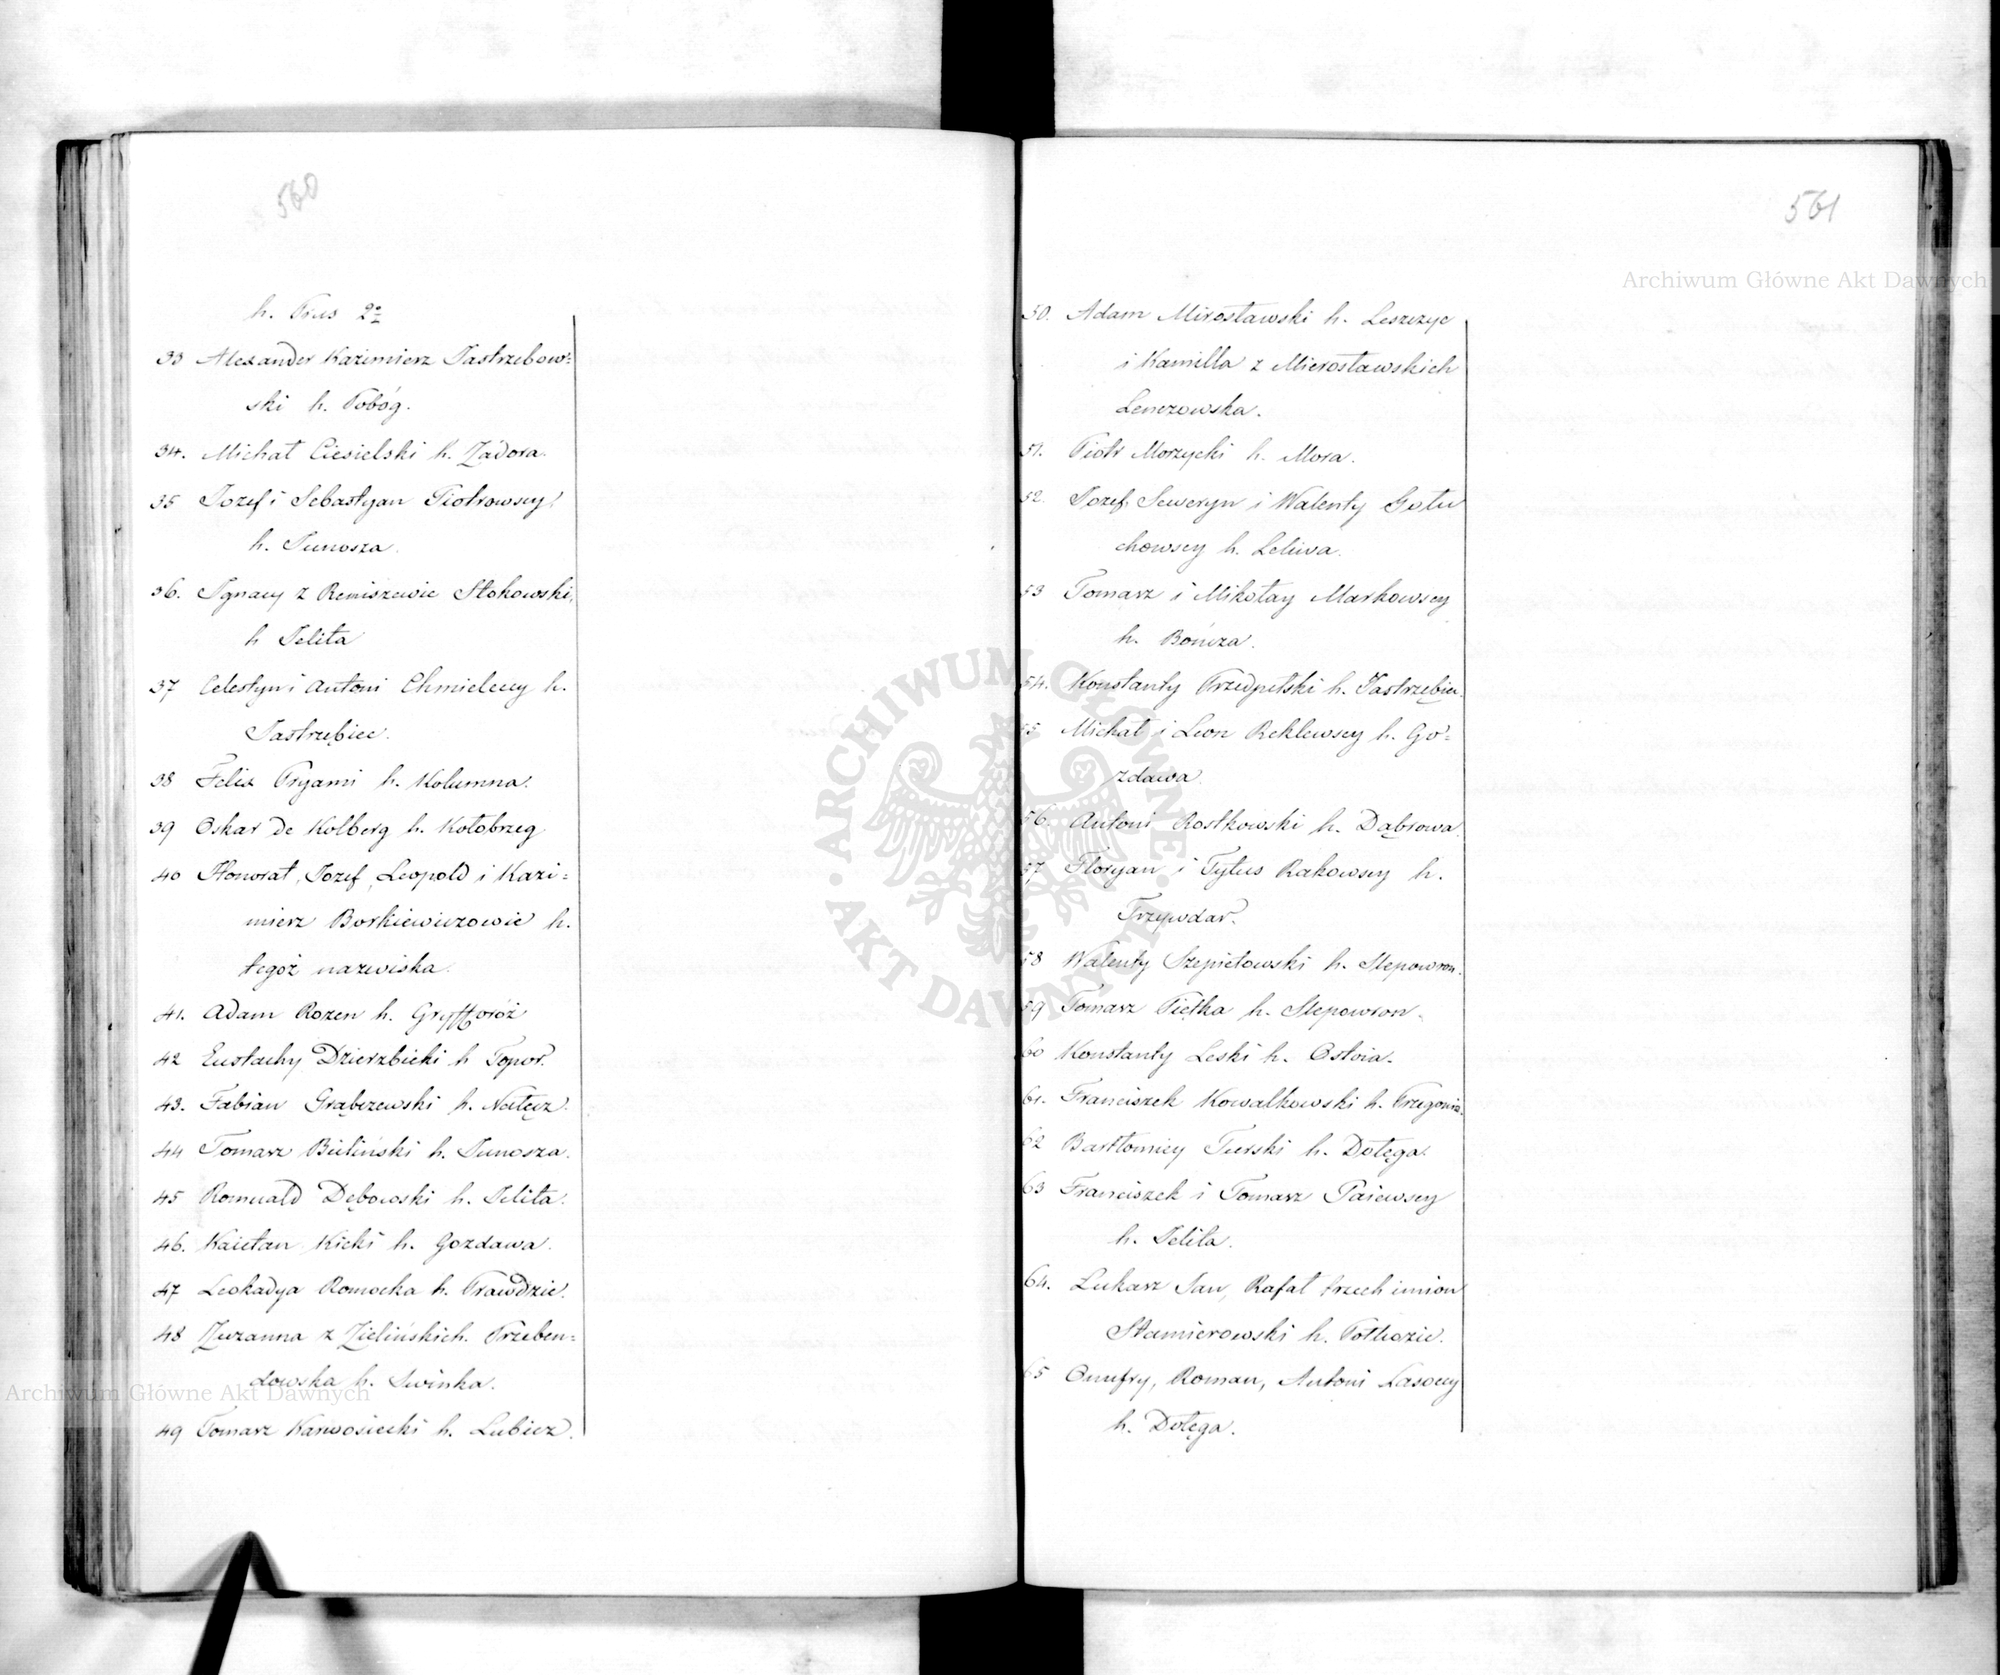 560
h. Prus 2º
33 Alexander Kazimierz Jastrzebow=
ski h. Pobóg.
34. Michał Ciesielski h. Zádora.
35 Jozef i Sebastyan Piotrowscy
h. Junosza.
36. Ignacy z Remiszewic Stokowski
h Jelita
37 Celestyn i Antoni Chmieleccy h.
Jastrzębiec.
38 Felix Pryami h. Kolumna.
39 Oskar de Kolberg h. Kołobrzeg
40 Honorat, Jozef, Leopold i Kazi=
mierz Borkiewiczowie h.
tegoż nazwiska.
41. Adam Rozen h. Gryff
42 Eustachy Dzierzbicki h Topor.
43. Fabian Grąbczewski h. Nałęcz.
44 Tomasz Bieliński h. Junosza.
45 Romuald Dębowski h. Jelita.
46. Kaietan Kicki h. Gozdawa.
47 Leokadya Romocka h. Prawdzic.
48 Zuzanna z Zielińskich Trzeben=
dowska h. Swinka.
49 Tomasz Karwosiecki h. Lubicz.
561
50. Adam Mirosławski h. Leszczyc
i Kamilla z Mierosławskich
Lenczowska.
51. Piotr Morzycki h. Mora.
52. Jozef, Seweryn i Walenty Gołu
chowscy h. Leliwa.
53 Tomasz i Mikołay Markowscy
h. Bończa.
54. Konstanty Przedpełski h. Jastrzębiec.
55 Michał i Leon Reklewscy h. Go=
zdawa.
56. Antoni Rostkowski h. Dąbrowa.
57 Floryan i Tytus Rakowscy h.
Trzywdar.
58 Walenty Szepietowski h. Slepowron.
59 Tomasz Piętka h. Slepowron.
60 Konstanty Leski h. Ostoia.
61. Franciszek Kowalkowski h. Przegonia.
62 Bartłomiey Turski h. Dołęga.
63 Franciszek i Tomasz Paiewscy
h. Jelita.
64. Lukasz Jan, Rafał trzech imion
Stamierowski h. Pothozie.
65 Onufry, Roman, Antoni Lasoccy
h. Dołęga.
Archiwum Główne Akt Dawnych
Archiwum Główne Akt Dawnych
ARCHIWUM GŁÓWNE AKT DAWNYCH